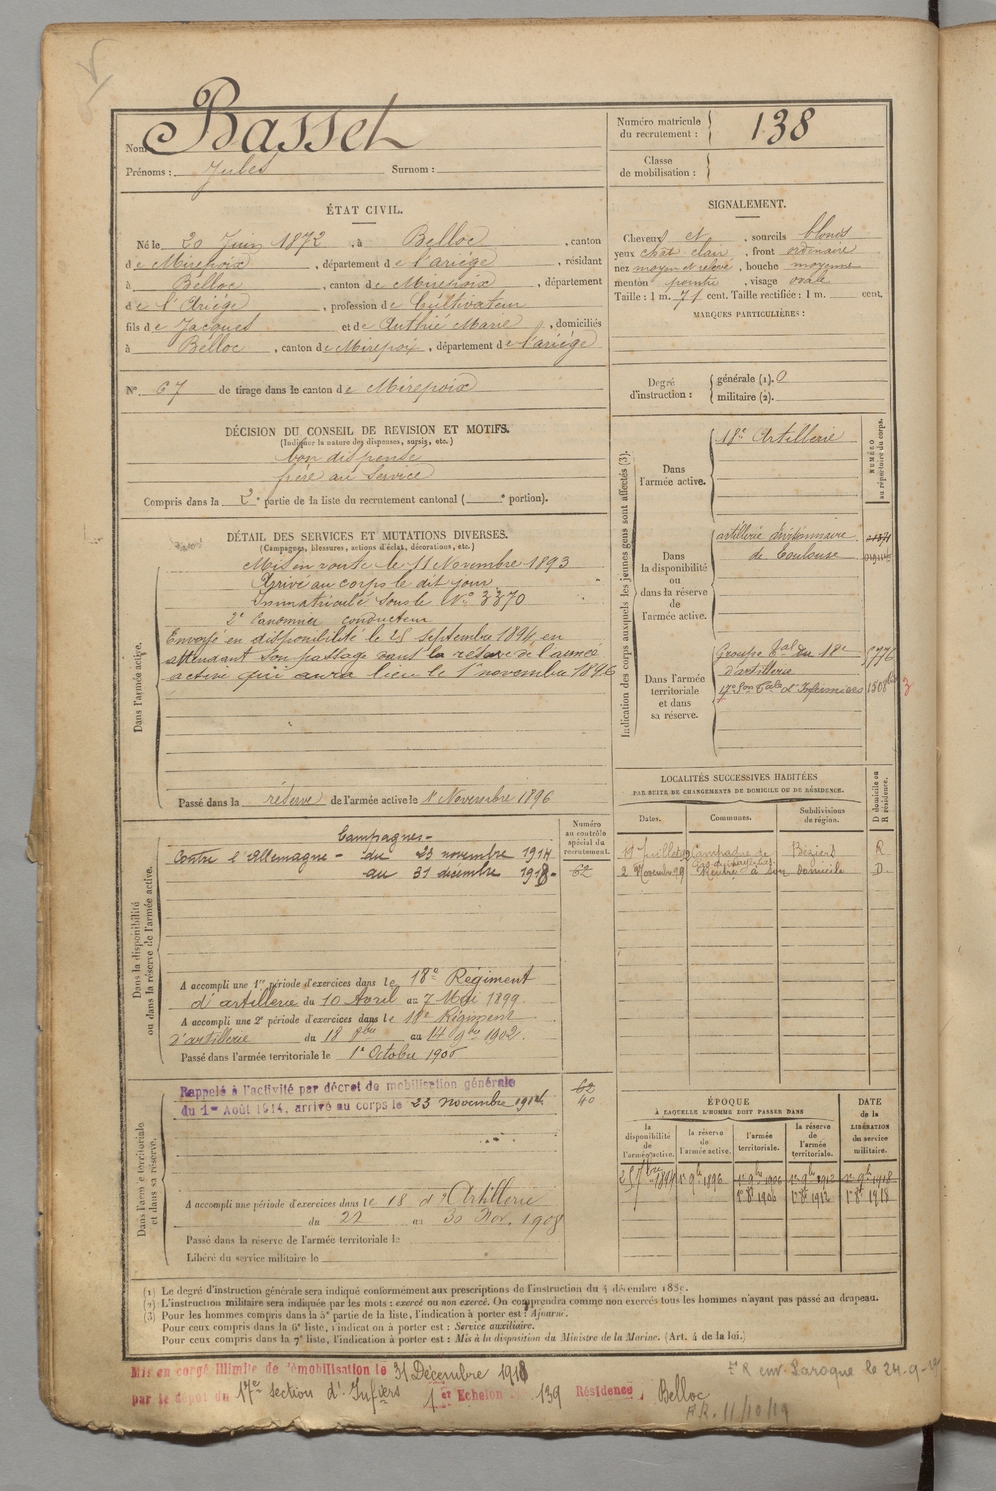 Nom : Basset
Prénoms : Jules Surnom :
Numéro matricule du recrutement : 138
Classe de mobilisation :
ÉTAT CIVIL.
Né le 20 Juin 1872, à Belloc, canton
de Mirepoix, département de l'ariège, résidant
à Belloc, canton de Mirepoix, département
de l'Ariége, profession de Cultivateur
fils de Jacques et de Authié Marie, domiciliés
à Belloc, canton de Mirepoix, département de l'ariège
N° 67 de tirage dans le canton de Mirepoix
DÉCISION DU CONSEIL DE REVISION ET MOTIFS.
(Indiquer la nature des dispenses, sursis, etc.)
bon dispensé
frère au Service
Compris dans la 2e partie de la liste du recrutement cantonal ( e portion).
SIGNALEMENT.
Cheveux et, sourcils blonds
yeux chat. clair, front ordinaire
nez moyen et relevé, bouche moyenne
menton pointu, visage ovale
Taille : 1 m. 71 cent. Taille rectifiée : 1 m. cent.
MARQUES PARTICULIÈRES :
Degré d'instruction : générale (1). 0
militaire (2).
DÉTAIL DES SERVICES ET MUTATIONS DIVERSES.
(Campagnes, blessures, actions d'éclat, décorations, etc.)
Dans l'armée active.
Mis en route le 11 Novembre 1893
Arrivé au corps le dit jour
Immatriculé sous le N° 3370
2e Canonnier conducteur
Envoyé en disponibilité le 25 septembre 1894 en
attendant son passage dans la réserve de l'armée
active qui aura lieu le 1er novembre 1896
Passé dans la réserve de l'armée active le 1er Novembre 1896
Indication des corps auxquels les jeunes gens sont affectés (3).
NUMÉRO au répertoire du corps.
Dans l'armée active.
18e Artillerie
Dans la disponibilité ou dans la réserve de l'armée active.
artillerie divisionnaire
de Toulouse
Dans l'armée territoriale et dans sa réserve.
Groupe tal du 18e 5776
d'artillerie
17e Son tale d'Infirmiers 1508 3
LOCALITÉS SUCCESSIVES HABITÉES
PAR SUITE DE CHANGEMENTS DE DOMICILE OU DE RÉSIDENCE.
Dates. Communes. Subdivisions de région. D domicile ou R résidence.
Campagne de Béziers R
2 Novembre 99 Rentré à son domicile D.
Dans la disponibilité ou dans la réserve de l'armée active.
Numéro au contrôle spécial du recrutement.
Campagnes -
Contre l'Allemagne - du 23 novembre 1914
au 31 décembre 1918 -
62
A accompli une 1re période d'exercices dans le 18e Régiment
d'artillerie du 10 Avril au 7 Mai 1899
A accompli une 2e période d'exercices dans le 18e Régiment
d'artillerie du 18 8bre au 14 9bre 1902.
Passé dans l'armée territoriale le 1er Octobre 1906
Dans l'armée territoriale et dans sa réserve.
Rappelé à l'activité par décret de mobilisation générale
du 1er Août 1914, arrivé au corps le 23 novembre 1914
62
40
A accompli une période d'exercices dans le 18 d'Artillerie
du 22 au 30 Nov. 1908
Passé dans la réserve de l'armée territoriale le
Libéré du service militaire le
ÉPOQUE
À LAQUELLE L'HOMME DOIT PASSER DANS
DATE de la LIBÉRATION du service militaire.
la disponibilité de l'armée active.
la réserve de l'armée active.
l'armée territoriale.
la réserve de l'armée territoriale.
25 7bre 1894 1er 9bre 1896 1er 9bre 1906 1er 9bre 1912 1er 9bre 1918
1er 8bre 1906 1er 8bre 1912 1er 8bre 1918
(1) Le degré d'instruction générale sera indiqué conformément aux prescriptions de l'instruction du 4 décembre 1889.
(2) L'instruction militaire sera indiquée par les mots : exercé ou non exercé. On comprendra comme non exercés tous les hommes n'ayant pas passé au drapeau.
(3) Pour les hommes compris dans la 5e partie de la liste, l'indication à porter est : Ajourné.
Pour ceux compris dans la 6e liste, l'indication à porter est : Service auxiliaire.
Pour ceux compris dans la 7e liste, l'indication à porter est : Mis à la disposition du Ministre de la Marine. (Art. 4 de la loi.)
Mis en congé illimité de démobilisation le 31 Décembre 1918
par le dépôt du 17e section d'Infiers 1er Echelon 139 Résidence, Belloc
F R env. Laroque le 24-9-19
F.R. 11/10/19